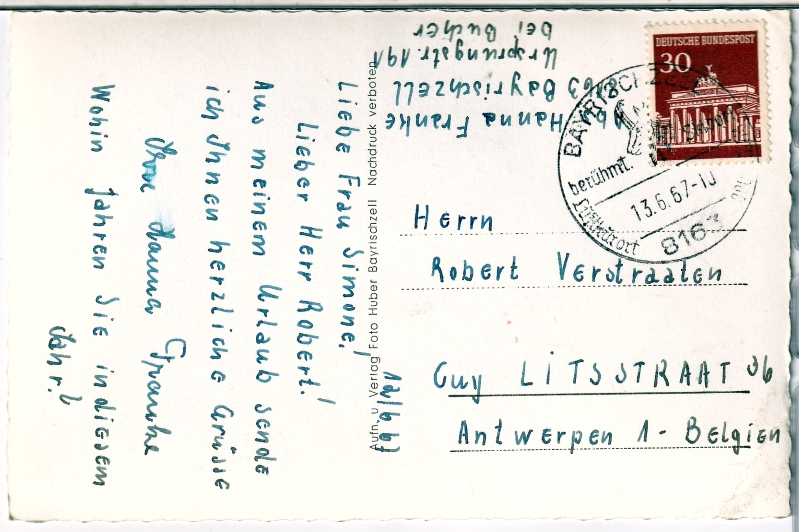 Abs. Hanna Franke
8163 Bayrischzell
Ursprungstr. 191
bei Bucher
12/6 67
Liebe Frau Simone!
Lieber Herr Robert!
Aus meinem Urlaub sende
ich Ihnen herzliche Grüsse
Ihre Hanna Franke
Wohin fahren Sie in diesem
Jahr?
Aufn. u. Verlag Foto Huber Bayrischzell Nachdruck verboten
DEUTSCHE BUNDESPOST
30
BAYRISCHZELL
berühmt.
Luftkurort
13.6.67-10
8163
Herrn
Robert Verstraaten
Guy LITSSTRAAT 36
Antwerpen 1 - Belgien